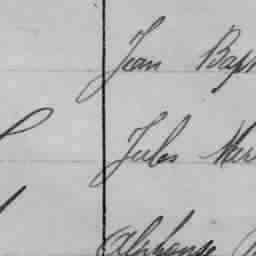 Jean Bap
Jules Mar
Alphonse